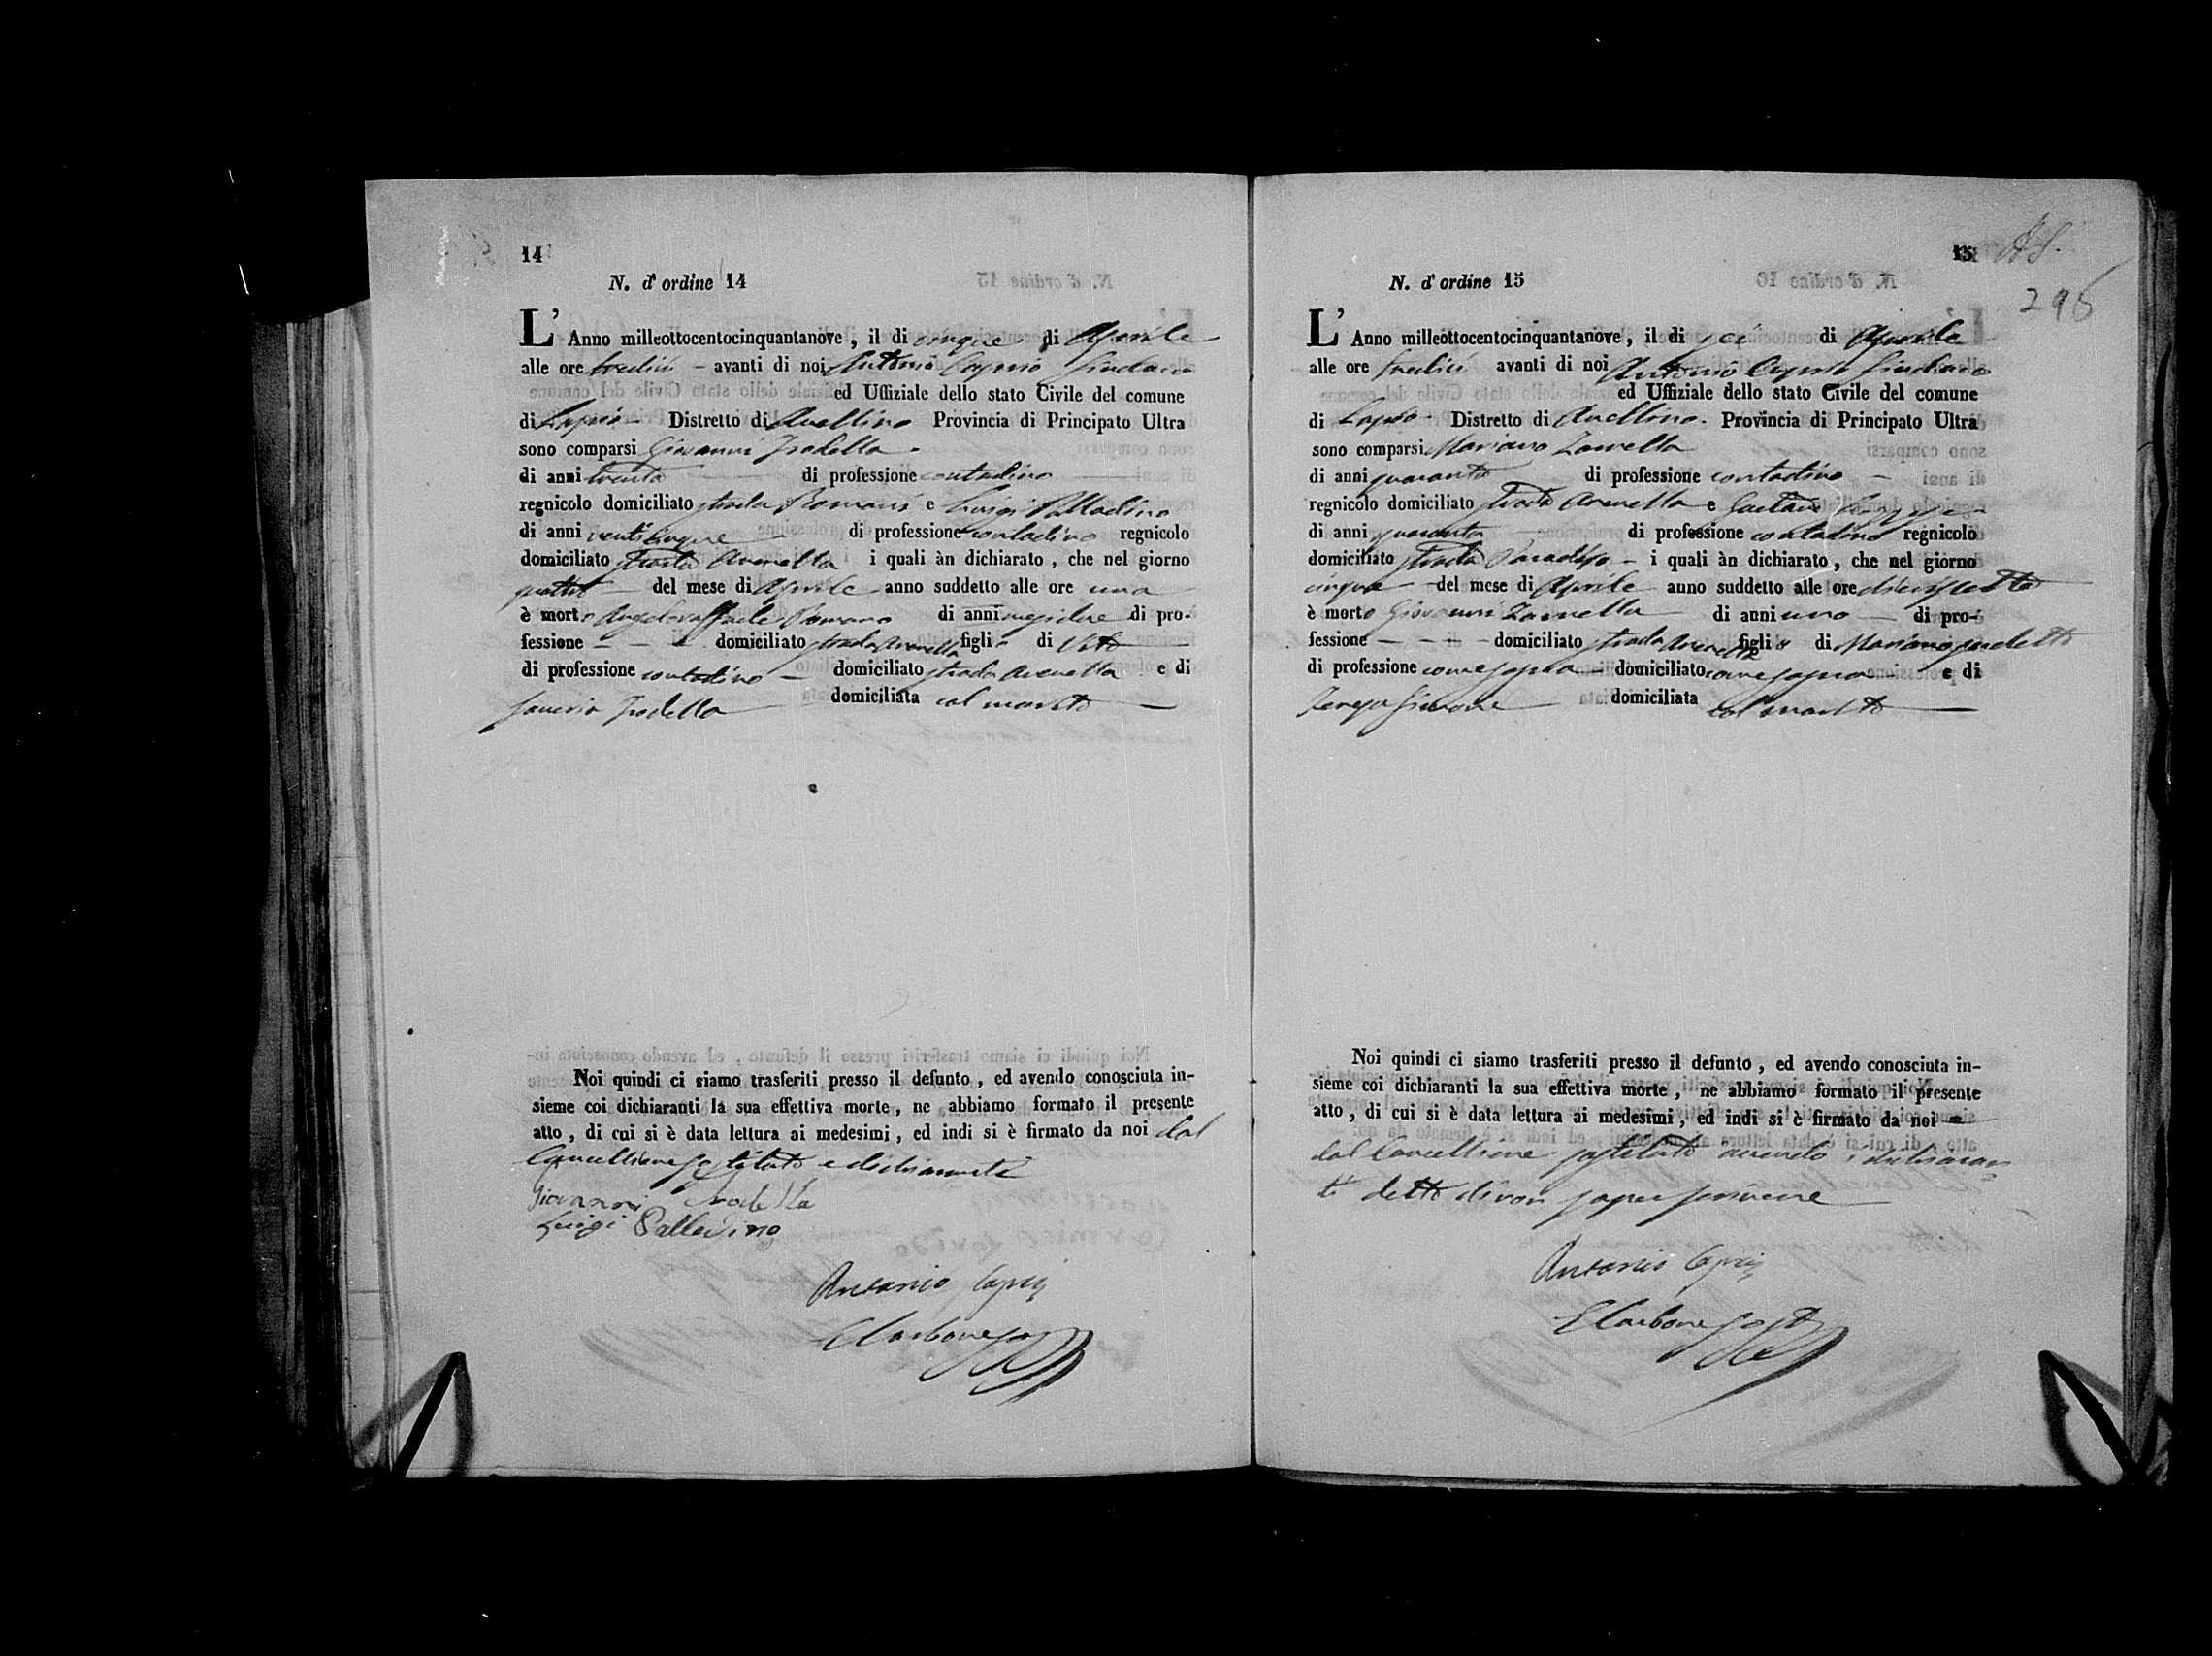 14
N. d' ordine 14
L' Anno milleottocentocinquantanove, il di cinque di Aprile
alle ore tredici - avanti di noi Antonio Caprio Sindaco
ed Uffiziale dello stato Civile del comune
di Lapio - Distretto di Avellino Provincia di Principato Ultra
sono comparsi Giovanni
di anni trenta di professione contadino
regnicolo domiciliato strada Romani e Luigi Palladino
di anni venticinque di professione contadino regnicolo
domiciliato strada Arenella i quali àn dichiarato, che nel giorno
quattro del mese di Aprile anno suddetto alle ore una
è morto Angeloraffaele Romano di anni di pro-
fessione - - - domiciliato strada Arenella figlio di Vito
di professione contadino - domiciliato strada Arenella e di
Saveria domiciliata col marito
Noi quindi ci siamo trasferiti presso il defunto, ed avendo conosciuta in-
sieme coi dichiaranti la sua effettiva morte, ne abbiamo formato il presente
atto, di cui si è data lettura ai medesimi, ed indi si è firmato da noi dal
Cancelliere sostituto e dichiaranti
Giovanni
Luigi Palladino
Antonio Caprio
E Carbone
15
296
N. d' ordine 15
L' Anno milleottocentocinquantanove, il di sei di Aprile
alle ore tredici avanti di noi Antonio Caprio Sindaco
ed Uffiziale dello stato Civile del comune
di Lapio - Distretto di Avellino. Provincia di Principato Ultra
sono comparsi Mariano Zarrella
di anni quaranta di professione contadino -
regnicolo domiciliato strada Arenella e Gaetano
di anni quaranta di professione contadino regnicolo
domiciliato strada Paradiso - i quali àn dichiarato, che nel giorno
cinque - del mese di Aprile anno suddetto alle ore diciassette
è morto Giovanni Zarrella di anni uno - di pro-
fessione - - - domiciliato strada Arenella figlio di Mariano sudetto
di professione come sopra - domiciliato come sopra - e di
Teresa Simone domiciliata col marito
Noi quindi ci siamo trasferiti presso il defunto, ed avendo conosciuta in-
sieme coi dichiaranti la sua effettiva morte, ne abbiamo formato il presente
atto, di cui si è data lettura ai medesimi, ed indi si è firmato da noi
dal Cancelliere sostituto avendo i dichiaran
ti detto di non saper scrivere
Antonio Caprio
E Carbone sost